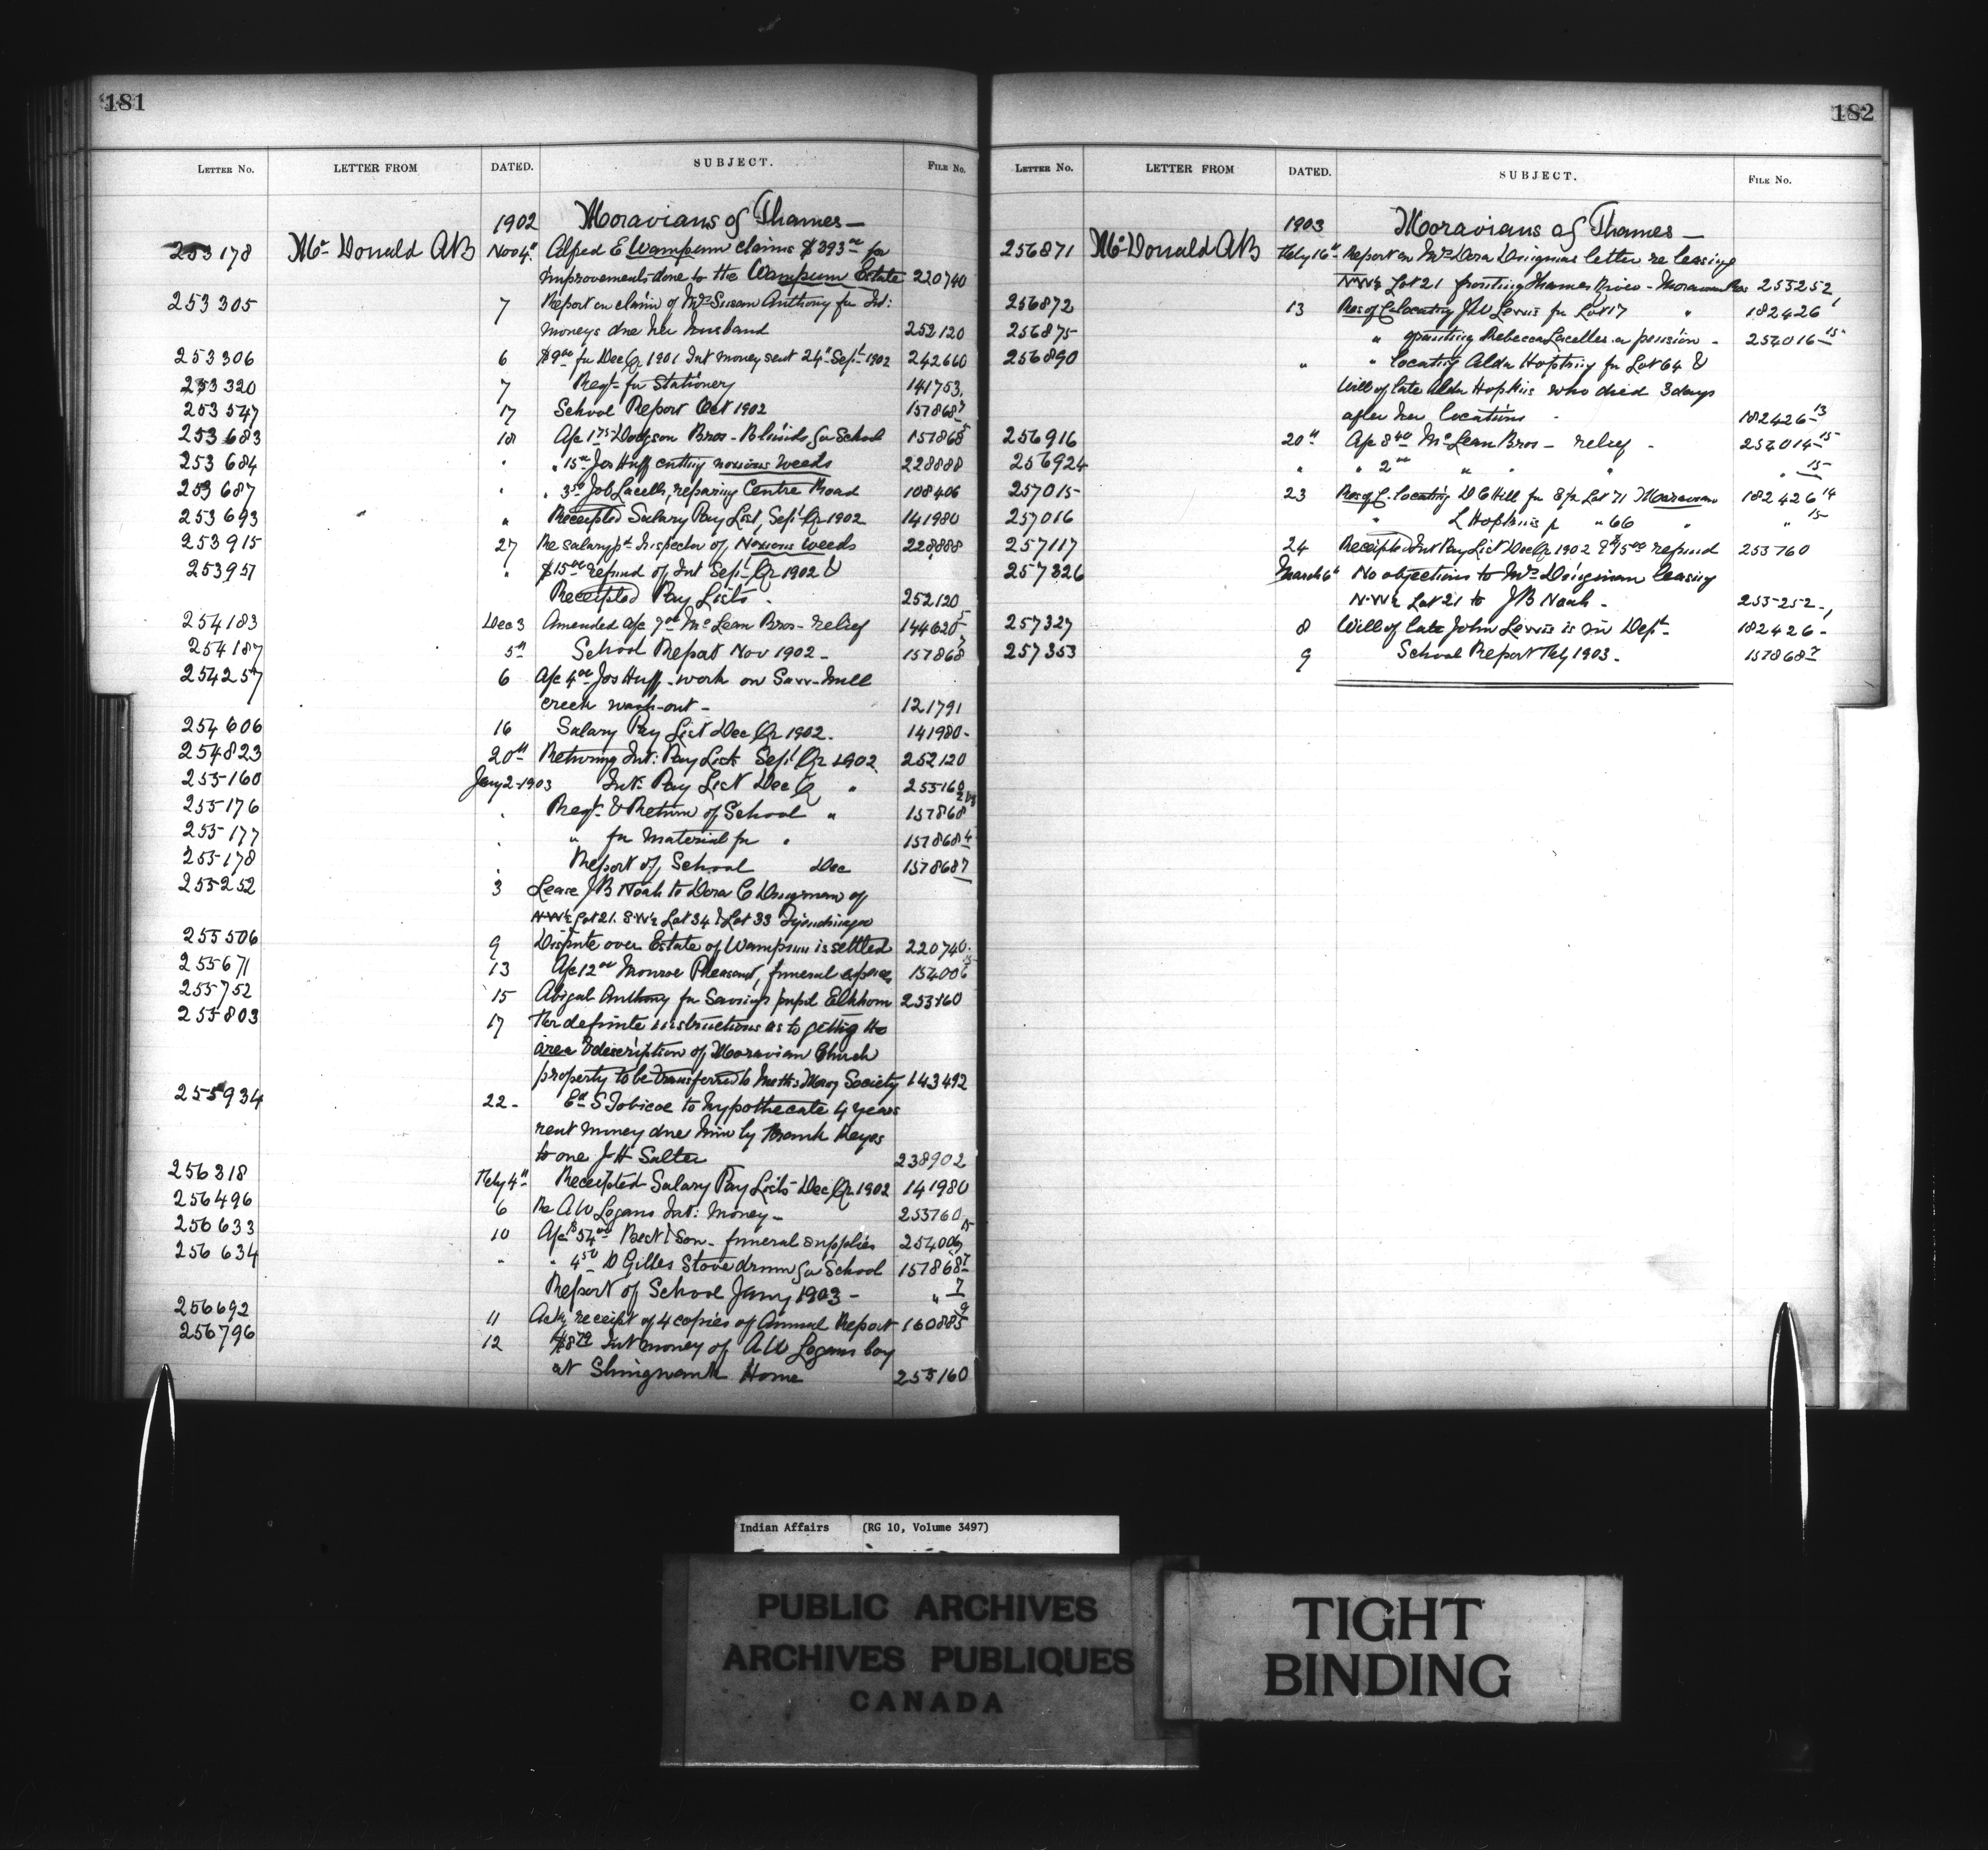 181
LETTER NO. LETTER FROM DATED. SUBJECT. FILE NO.
1902 Moravians of Thames —
253178 Mc Donald AB Nov 4" Alfred E Wampum claims $393.00 for
improvements done to the Wampum Estate 220740
253305 7 Report on claim of Mrs Susan Anthony for Int:
moneys due her husband 252120
253306 6 $9.00 for Dec Qr 1901 Int money sent 24" Sept 1902 242660
253320 7 Reqt for Stationery 141753
253547 17 School Report Oct 1902 157868 7
253683 18 A/c 1.75 Dodgson Bros - Blinds for School 157868 5
253684 " " 15.00 Jos Huff cutting noxious weeds 228888
253687 " " 3.50 Job Lacelle, repairing Centre Road 108406
253693 " Receipted Salary Pay List, Sept Qr 1902 141980
253915 27 Re salary pt Inspector of Noxious weeds 228888
253957 " $15.00 refund of Int Sept Qr 1902 &
Receipted Pay Lists - 252120
254183 Dec 3 Amended A/c 7.00 Mc Lean Bros - relief 144620 5
254187 5" School Report Nov 1902 - 157868 7
254257 6 A/c 4.00 Jos Huff - work on Saw-Mill
creek wash-out - 121791
254606 16 Salary Pay List Dec Qr 1902 - 141980 -
254823 20" Returning Int: Pay Lists Sept Qr 1902 252120
255160 Jany 2 - 1903 Int: Pay List Dec Qr " 255160
255176 " Reqt & Return of School " 157868
255177 " " for material for " 157868 4
255178 " Report of School Dec 157868 7
255252 3 Lease JB Noah to Dora C Dnigman of
N.W½ Lot 21. S.W¼ Lot 34 & Lot 33
255506 9 Dispute over Estate of Wampum is settled 220740
255671 13 A/c 12.00 Monroe Pheasant, funeral expenses 154006
255752 15 Abigal Anthony for Savings pupil Elkhorn 253760
255803 17 For definite instructions as to getting the
area & description of Moravian Church
property to be transferred to Meths Miss'y Society 143492
255934 22 - Ed S Tobicoe to hypothecate 4 years
rent money due him by Frank Keyes
to one J H Salter 238902
256318 Feby 4" Receipted Salary Pay Lists - Dec Qr 1902 141980
256496 6 Re AW Logans Int: Money - 253760
256633 10 A/c $54.00 Beck & Son - funeral supplies 254006 15
256634 " " 4.50 D Gilles Stove drum for School 157868 7
Report of School Jany 1903 - " 7
256692 11 Ackg receipt of 4 copies of Annual Report 160885 9
256796 12 $8.79 Int money of AW Logans boy
at Shingwauk Home 255160
182
LETTER NO. LETTER FROM DATED. SUBJECT. FILE NO.
1903 Moravians of Thames —
256871 Mc Donald AB Feby 16" Report on Mrs Dora Dnigmans letter re leasing
N.W½ Lot 21 fronting Thames River - Moravian Res 255252 1
256872 13 Res of C. locating JW Lewis for Lot 17 " 182426
256875 " granting Rebecca Lacelles a pension - 254016 15
256890 " " locating Alda Hopkins for Lot 64 &
Will of late Alda Hopkins who died 3 days
after her locations - 182426 13
256916 20" A/c 8.40 Mc Lean Bros - relief - 254014 15
256924 " " 2.00 " " " " 15
257015 23 Res of C. locating D C Hill for Lot 71 Moravian 182426 14
257016 " L Hopkins for " 66 " " 15
257117 24 Receipted Int Pay List Dec Qr 1902 & $15.00 refund 253760
257326 March 6" No objections to Mrs Dnigman leasing
N.W½ Lot 21 to JB Noah - 255252 - 1
257327 8 Will of late John Lewis is in Dept - 182426 -
257353 9 School Report Feby 1903 - 157868 7
Indian Affairs (RG 10, Volume 3497)
PUBLIC ARCHIVES
ARCHIVES PUBLIQUES
CANADA
TIGHT
BINDING